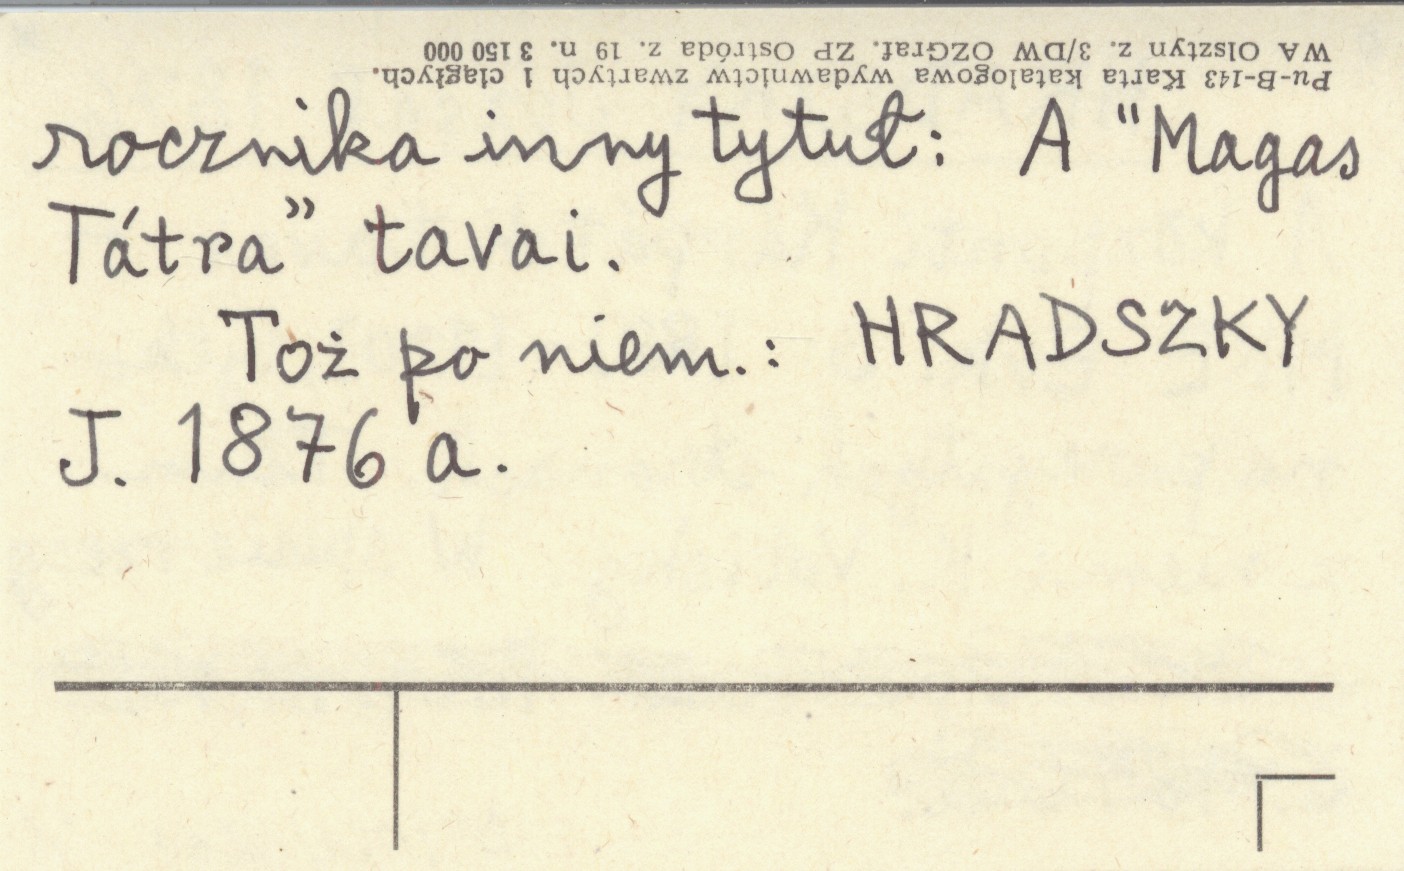 Pu-B-143 Karta katalogowa wydawnictw zwartych i ciągłych.
WA Olsztyn z. 3/DW OZGraf. ZP Ostróda z. 19 n. 3 150 000
rocznika inny tytuł: A "Magas
Tátra” tavai.
Toż po niem.: HRADSZKY
J. 1876 a.